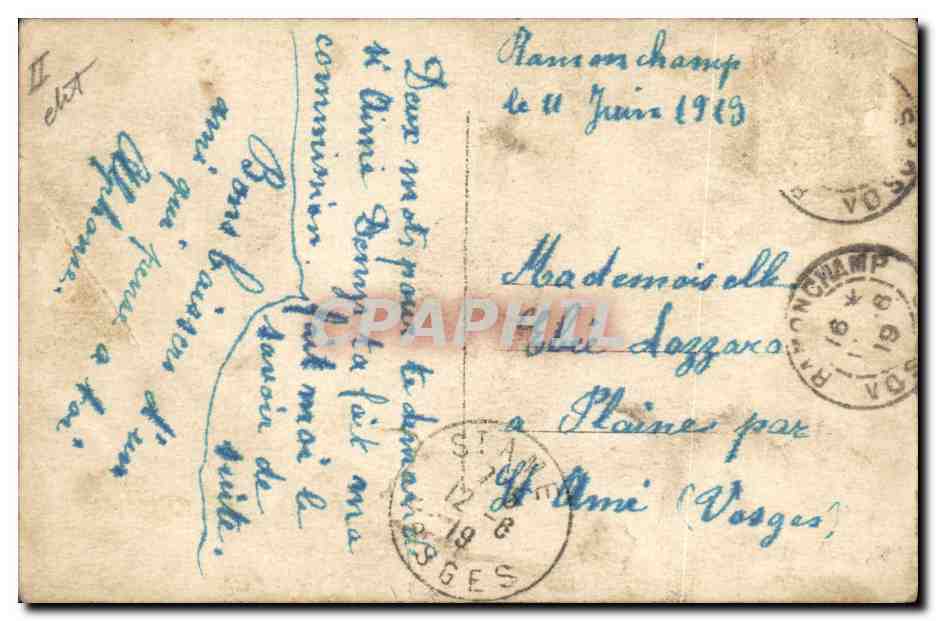 II
dit
Ramonchamp
le 11 Juin 1919
Deux mots pour te demander
si Aimé Demy t'a fait ma
commission. fait moi le
savoir de
suite.
Bons baisers d'un
ami qui pense a toi
Alphonse.
Mademoiselle
Lazzara
a Plaines par
St Amé (Vosges)
RAMONCHAMP
16 *
11-6
19
VOSGES
VOSGES
ST AMÉ
12-6
19
VOSGES
CPAPHIL